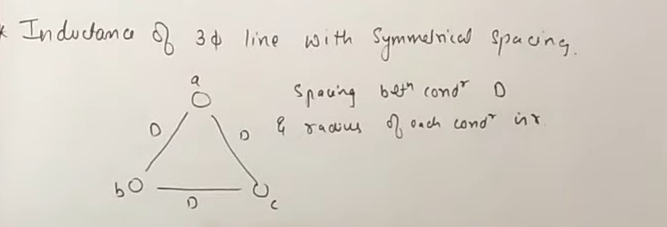 * Inductance of 3φ line with Symmetrical Spacing.
a
Spacing betn condr D
D D & radius of each condr is r
b D c